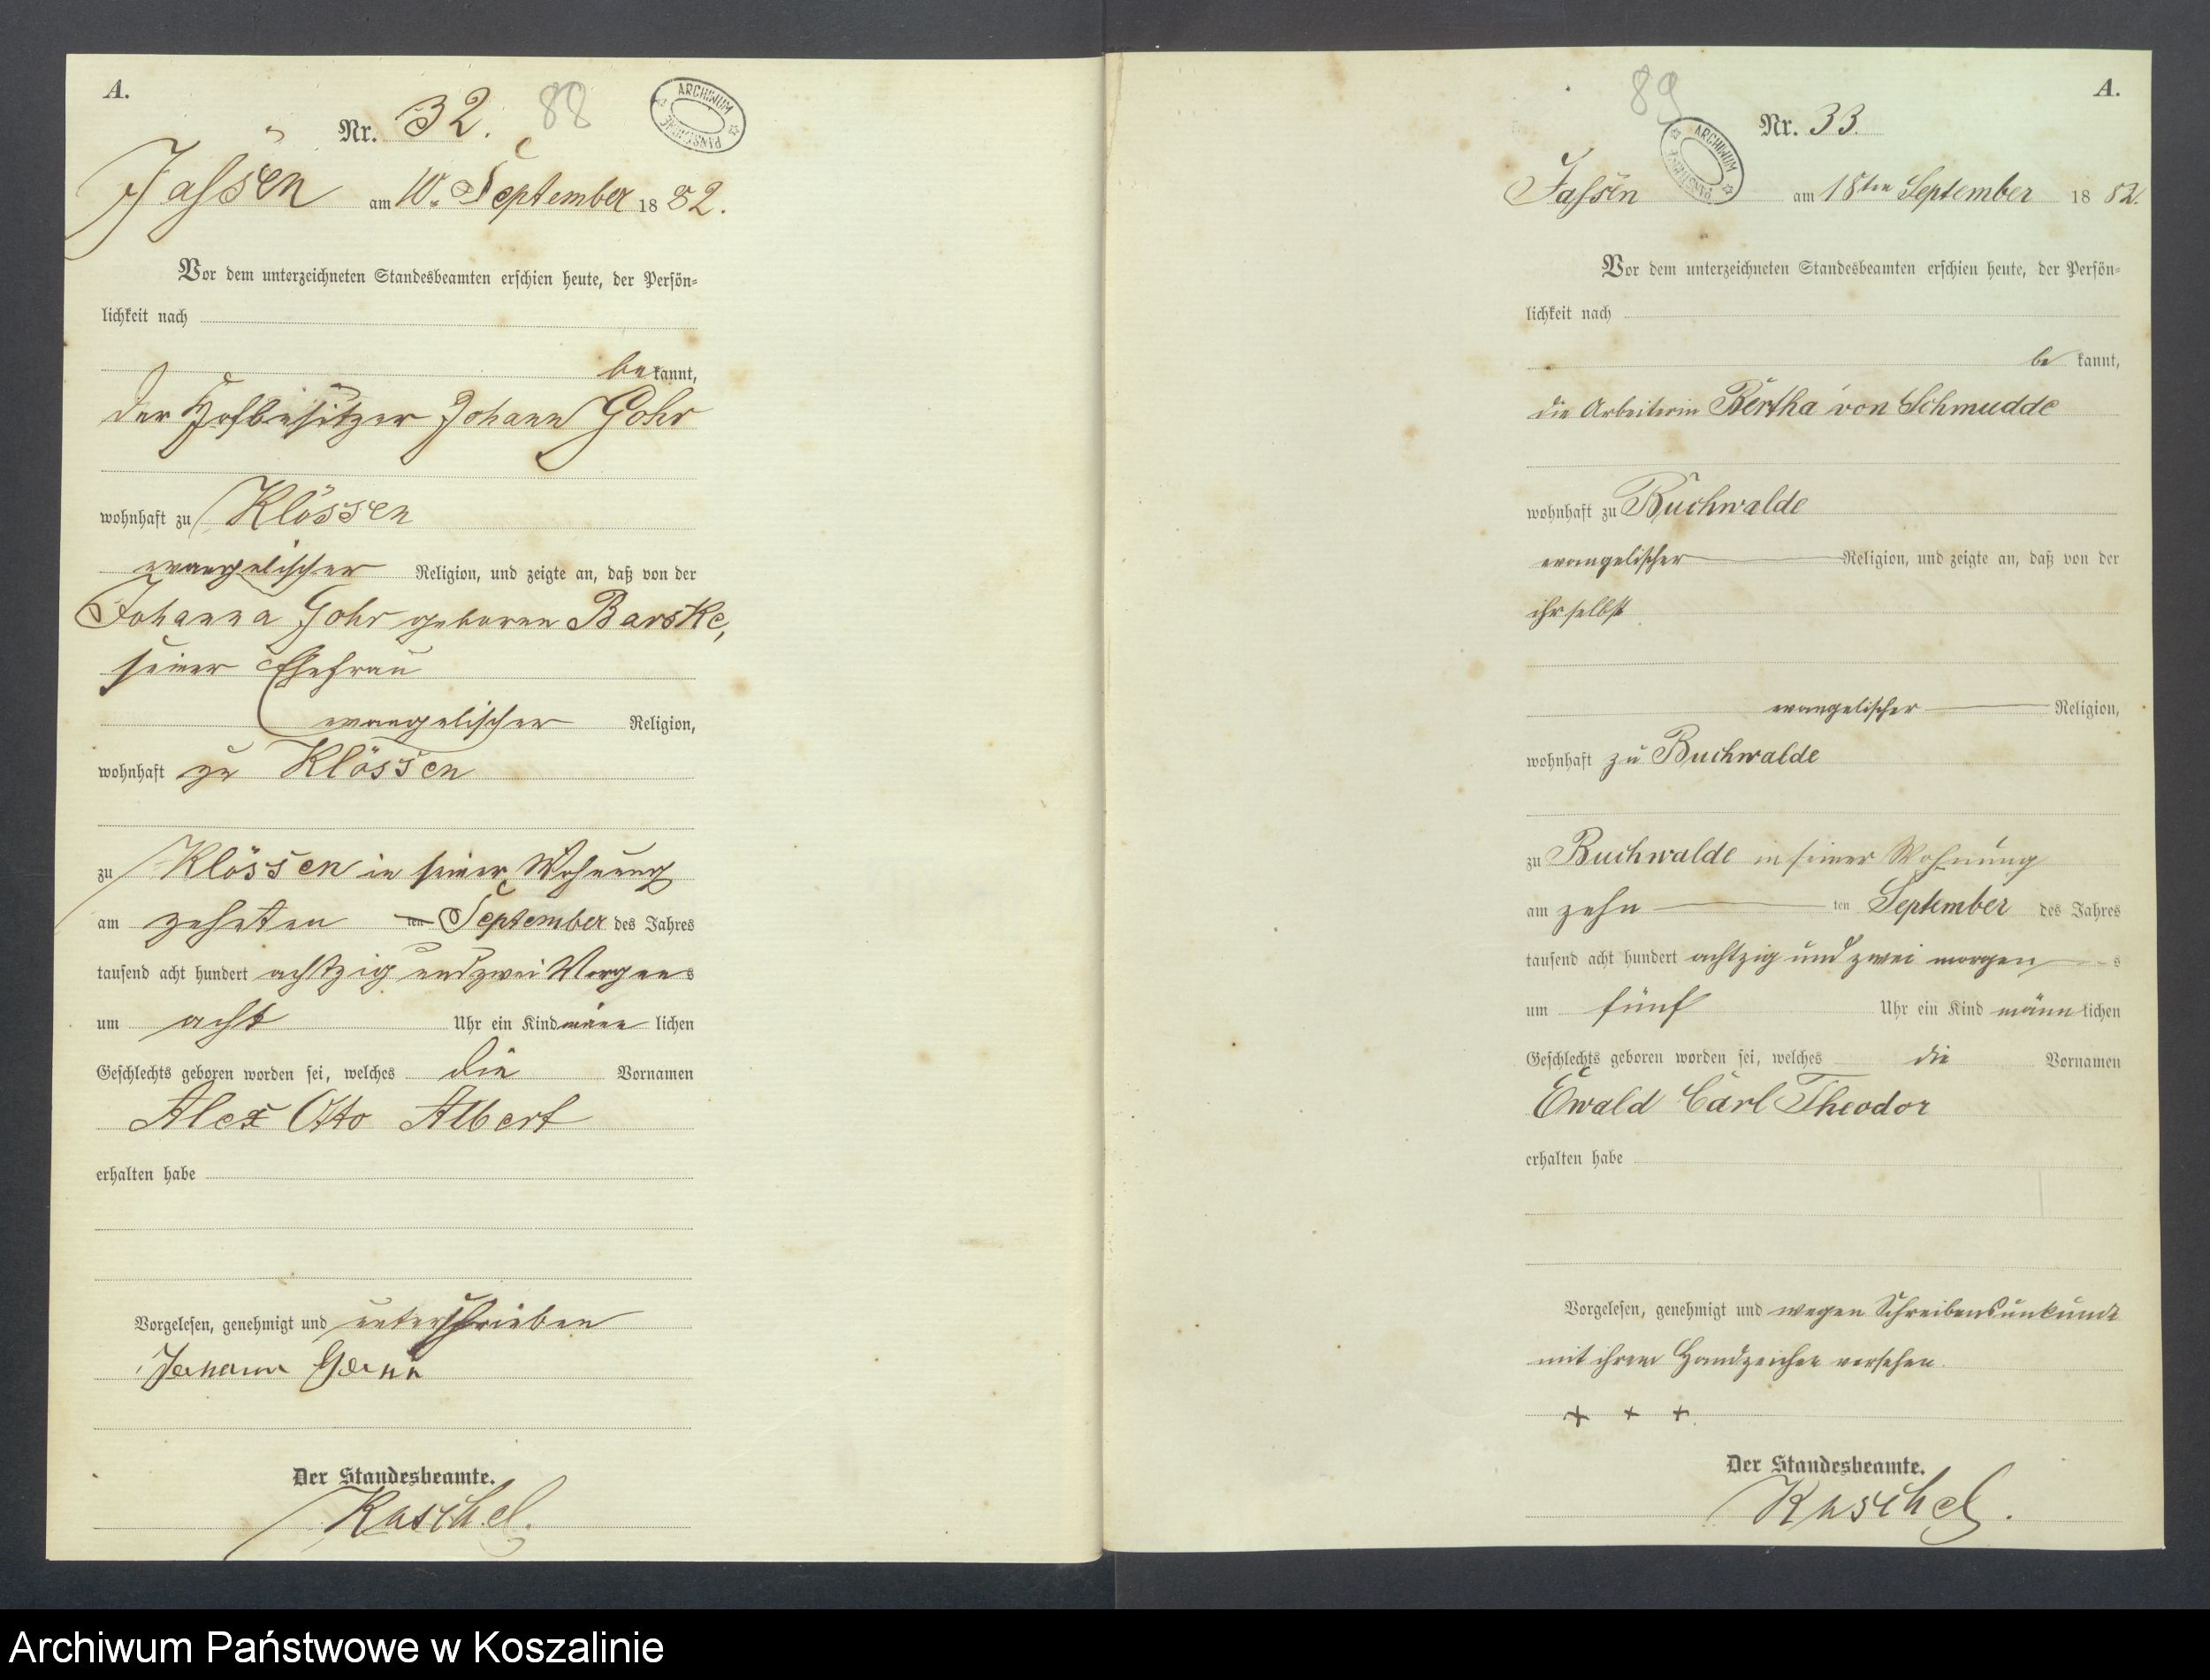 A.
Nr. 32. 88
ARCHIWUM PAŃSTWOWE
Jassen am 10. September 1882.
Vor dem unterzeichneten Standesbeamten erschien heute, der Persön-
lichkeit nach
bekannt,
der Hofbesitzer Johann Gohr
wohnhaft zu Klössen
evangelischer Religion, und zeigte an, daß von der
Johanna Gohr geborene Barske,
seiner Ehefrau
evangelischer Religion,
wohnhaft zu Klössen
zu Klössen in seiner Wohnung
am zehnten ten September des Jahres
tausend acht hundert achtzig und zwei Morgens
um acht Uhr ein Kind männlichen
Geschlechts geboren worden sei, welches die Vornamen
Alex Otto Albert
erhalten habe
Vorgelesen, genehmigt und unterschrieben
Johann
Der Standesbeamte.
Kaschel.
A.
89
Nr. 33.
ARCHIWUM PAŃSTWOWE
Jassen am 18ten September 1882.
Vor dem unterzeichneten Standesbeamten erschien heute, der Persön-
lichkeit nach
bekannt,
die Arbeiterin Bertha von Schmudde
wohnhaft zu Buchwalde
evangelischer Religion, und zeigte an, daß von der
ihr selbst
evangelischer Religion,
wohnhaft zu Buchwalde
zu Buchwalde in seiner Wohnung
am zehn ten September des Jahres
tausend acht hundert achtzig und zwei morgens
um fünf Uhr ein Kind männlichen
Geschlechts geboren worden sei, welches die Vornamen
Ewald Carl Theodor
erhalten habe
Vorgelesen, genehmigt und wegen Schreibensunkunde
mit ihrem Handzeichen versehen.
+ + +
Der Standesbeamte.
Kaschel.
Archiwum Państwowe w Koszalinie